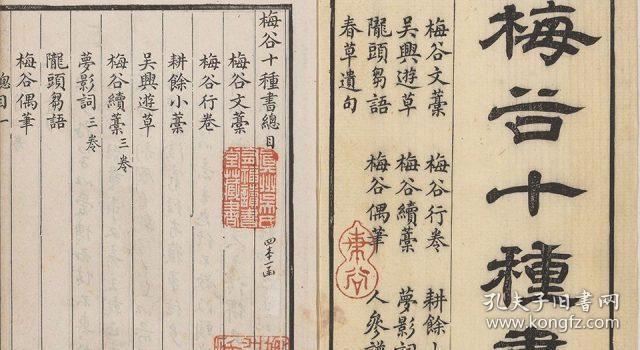 梅谷十種書
梅谷文藁 梅谷行卷 耕餘小
吳興遊草 梅谷續藁 夢影詞
隴頭芻語 梅谷偶筆 人參譜
春草遺句
梅谷十種書總目
真州吳氏有福讀書堂藏書
四本一函
梅谷文藁
梅谷行卷
耕餘小藁
吳興遊草
梅谷續藁 三卷
夢影詞 三卷
隴頭芻語
梅谷偶筆
總目一
孔夫子旧书网
www.kongfz.com